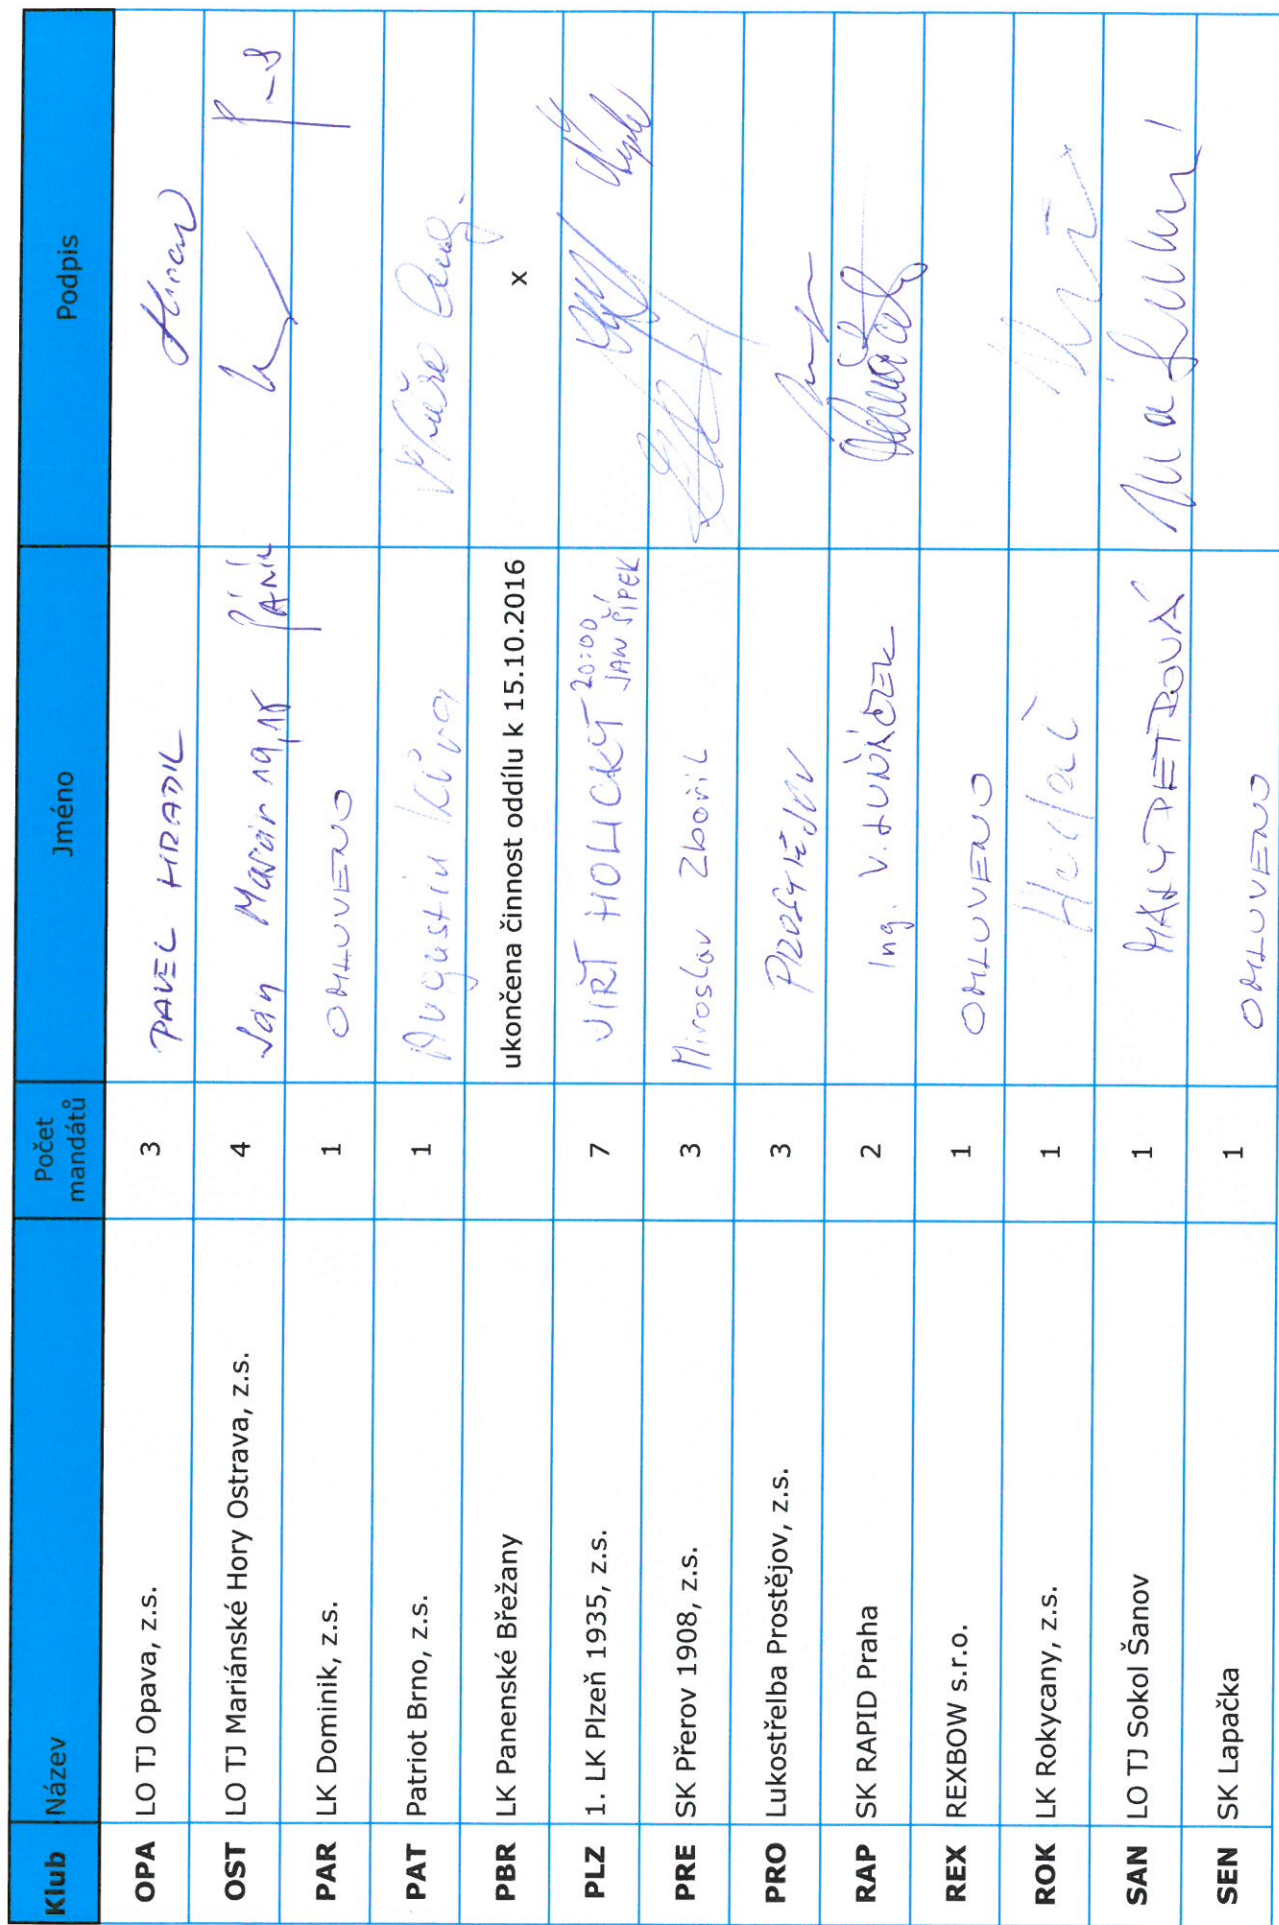 Klub Název Počet mandátů Jméno Podpis
OPA LO TJ Opava, z.s. 3 PAVEL HRADIL
OST LO TJ Mariánské Hory Ostrava, z.s. 4 Jan
PAR LK Dominik, z.s. 1 OMLUVENO
PAT Patriot Brno, z.s. 1 Augustin
PBR LK Panenské Břežany ukončena činnost oddílu k 15.10.2016 x
PLZ 1. LK Plzeň 1935, z.s. 7 JIŘÍ HOLICKÝ 20:00 JAN ŠÍPEK
PRE SK Přerov 1908, z.s. 3 Miroslav Zbořil
PRO Lukostřelba Prostějov, z.s. 3 PROSTĚJOV
RAP SK RAPID Praha 2 Ing. V. LUŇÁČEK
REX REXBOW s.r.o. 1 OMLUVENO
ROK LK Rokycany, z.s. 1
SAN LO TJ Sokol Šanov 1 MALÝ PETROVÁ
SEN SK Lapačka 1 OMLUVENO